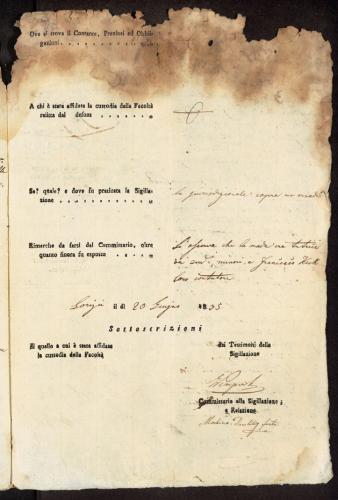 Ove si trova il Contante, Preziosi ed Obbli-
gazioni . . . . . . . . . . . . .
A chi è stata affidata la custodia della Facoltà
relitta dal defonto . . . . . . . .
Se? quale? e dove fu praticata la Sigilla-
zione . . . . . . . . . . . .
la giurisdizionale: sopra un
Rimarche da farsi dal Commissario, oltre
quanto finora fu esposto . . . . . .
Si osserva che la madre era tutrice
dei minori, e Francesco
loro contutore
li di 20 Giugno 1835
Sottoscrizioni
di quello a cui è stata affidata
la custodia della Facoltà
dei Testimonj della
Sigillazione
Commissario alla Sigillazione
e Relazione